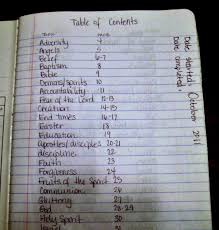 Table of Contents
Topic PAGE
Adversity 4
Angels 5
Belief 6-7
Baptism 8
Bible 9
Demons/spirits 10
Accountability 11
Fear of the Lord 12-13
Creation 14-15
End times 16-17
Easter 18
Education 19
apostles/disciples 20-21
discipline 22
Faith 23
Forgiveness 24
Fruits of the Spirit 25
Communion 26
Gluttony 27
God 28-29
Holy Spirit 30
Date started: October 2011
Date completed: